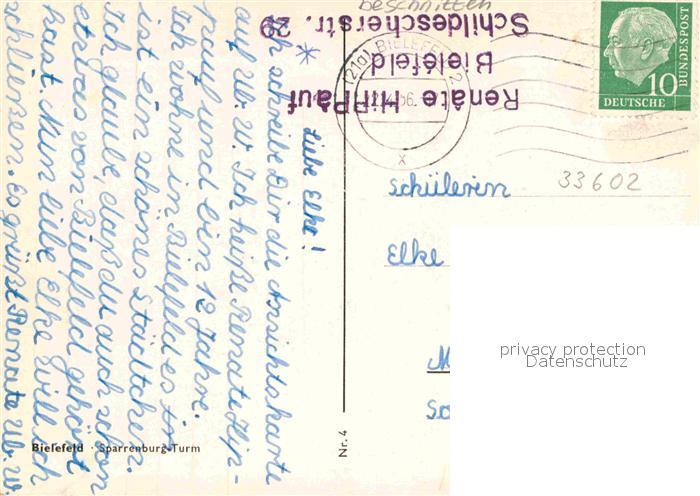 beschnitten
Renate Hippauf
Bielefeld
Schildescherstr. 29
(21a) BIELEFELD 2
56.
x
10
DEUTSCHE
BUNDESPOST
Liebe Elke!
Ich schreibe Dir die Ansichtskarte
auf U. W. Ich heiße Renate Hip-
pauf und bin 12 Jahre.
Ich wohne in Bielefeld es
ist ein schönes Städtchen.
Ich glaube, daß du auch schon
etwas von Bielefeld gehört
hast. Nun liebe Elke will ich
schließen. Es grüßt Renate U. W.
Bielefeld · Sparrenburg-Turm
Nr. 4
Schülerin
33602
Elke
privacy protection
Datenschutz